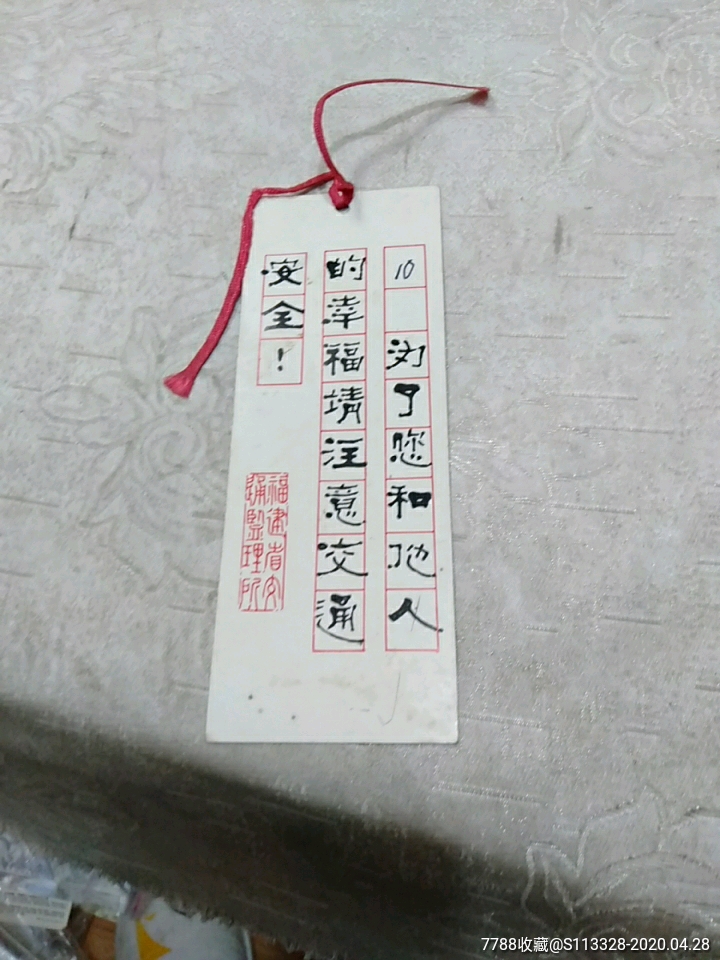 10 为了您和他人
的幸福请注意交通
安全！
福建省交
通监理所
7788收藏@S113328-2020.04.28